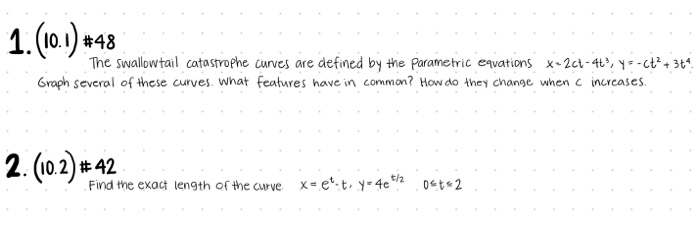 1. (10.1) #48
The swallowtail catastrophe curves are defined by the parametric equations x=2ct-4t³, y=-ct²+3t⁴.
Graph several of these curves. What features have in common? How do they change when c increases.
2. (10.2) #42
Find the exact length of the curve. x=eᵗ-t, y=4e^(t/2) 0≤t≤2